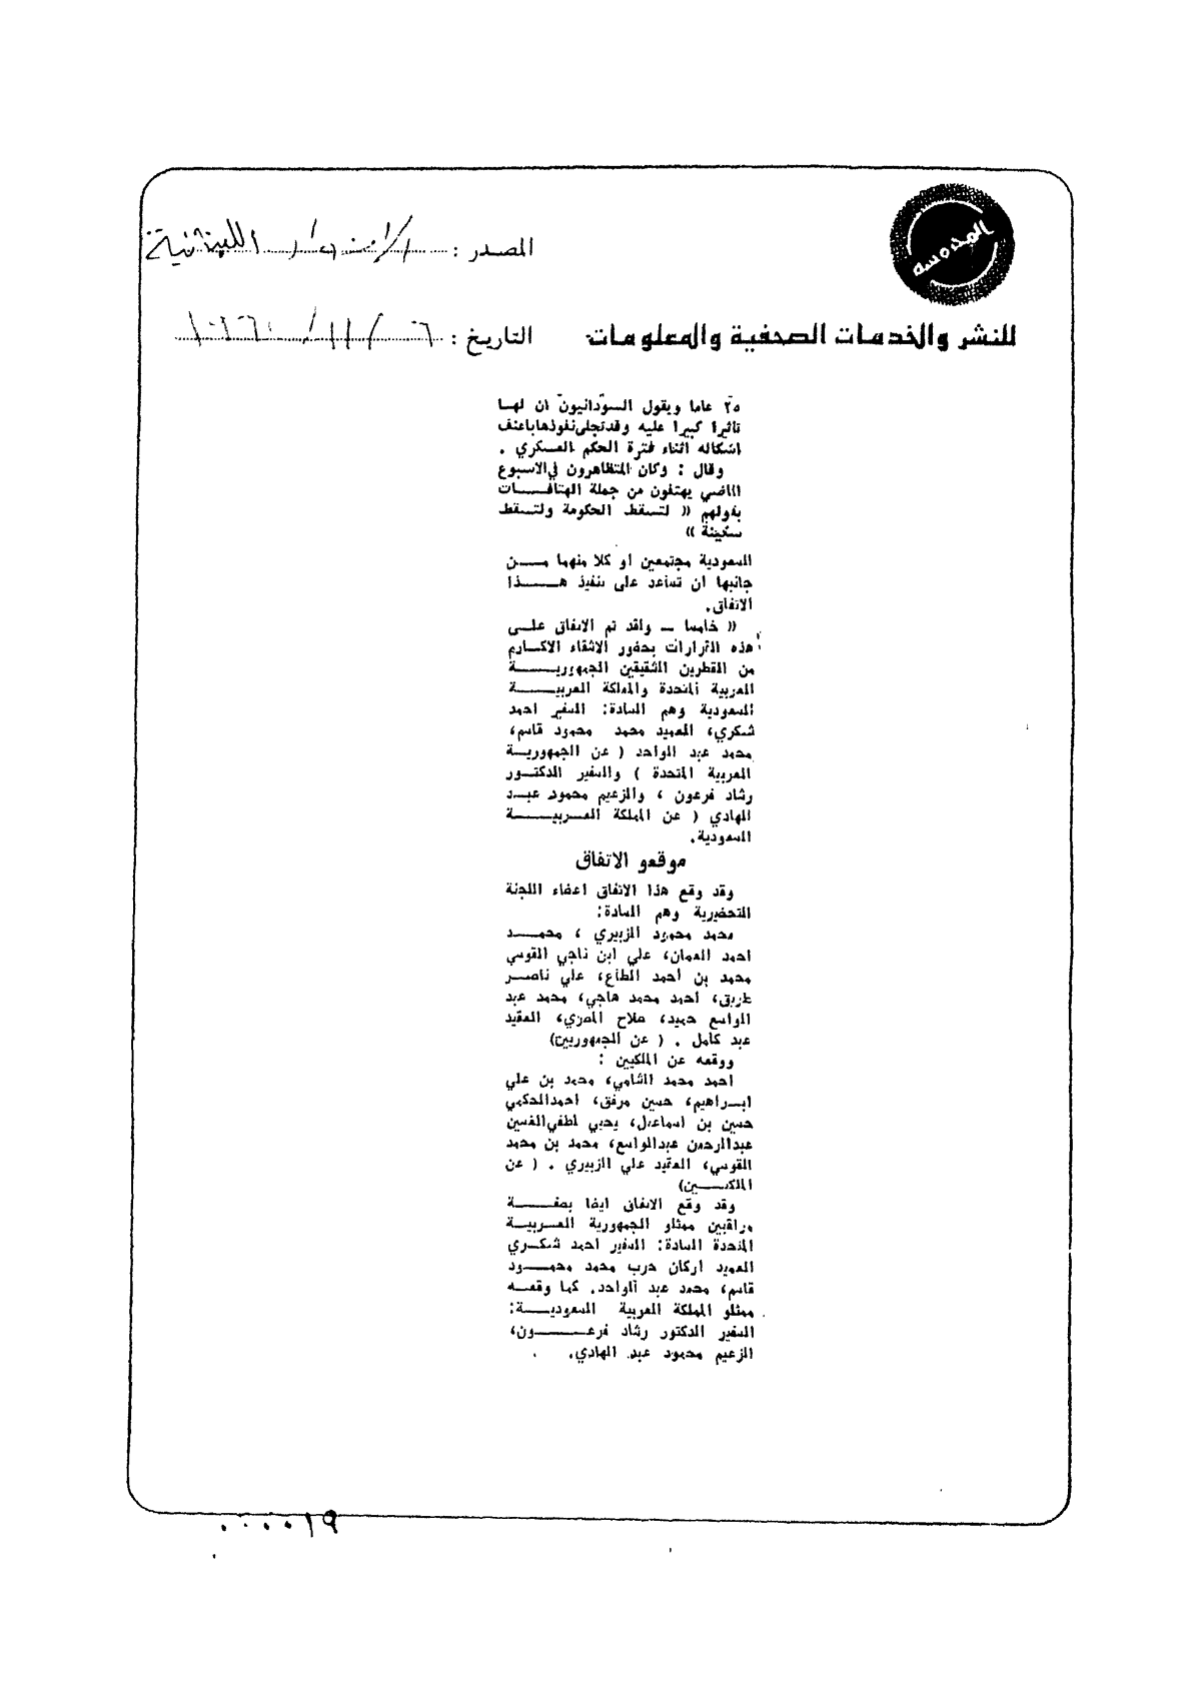 المحروسه
المصدر : الانوار اللبنانية
للنشر والخدمات الصحفية والمعلومات
التاريخ :
٢٥ عاما ويقول السودانيون ان لهـا
تأثيرا كبيرا عليه وقد تجلى نفوذها باعنف
اشكاله اثناء فترة الحكم العسكري .
وقال : وكان المتظاهرون في الاسبوع
الماضي يهتفون من جملة الهتافـــات
بقولهم « لتسقط الحكومة ولتسقط
سكينة »
السعودية مجتمعين او كلا منهما مــن
جانبها ان تساعد على تنفيذ هـــذا
الاتفاق.
« خامسا ــ ولقد تم الاتفاق علــى
هذه القرارات بحضور الاشقاء الاكـارم
من القطرين الشقيقين الجمهوريـــة
العربية المتحدة والمملكة العربيـــة
السعودية وهم السادة: السفير احمد
شكري، العميد محمد محمود قاسم،
محمد عبد الواحد ( عن الجمهوريــة
العربية المتحدة ) والسفير الدكتــور
رشاد فرعون ، والزعيم محمود عبــد
الهادي ( عن المملكة العــربيـــة
السعودية.
موقعو الاتفاق
وقد وقع هذا الاتفاق اعضاء اللجنة
التحضيرية وهم السادة:
محمد محمود الزبيري ، محمــد
احمد النعمان، علي ابن ناجي القوسي
محمد بن أحمد المطاع، علي ناصــر
طريق، أحمد محمد هاجي، محمد عبد
الواسع حميد، صلاح المصري، العقيد
عبد كامل . ( عن الجمهوريين)
ووقعه عن الملكيين :
احمد محمد الشامي، محمد بن علي
ابــراهيم، حسين مرفق، احمد الحكمي
حسين بن اسماعيل، يحيي لطفي
عبدالرحمن عبدالواسع، محمد بن محمد
القوسي، العقيد علي الزبيري . ( عن
الملكـــين)
وقد وقع الاتفاق ايضا بصفـــة
مراقبين ممثلو الجمهورية العــربيــة
المتحدة السادة: السفير احمد شكــري
العميد اركان حرب محمد محمــود
قاسم، محمد عبد الواحد. كما وقعــه
ممثلو المملكة العربية السعوديـــة:
السفير الدكتور رشاد فرعــــون،
الزعيم محمود عبد الهادي.
٠٠٠٠١٩